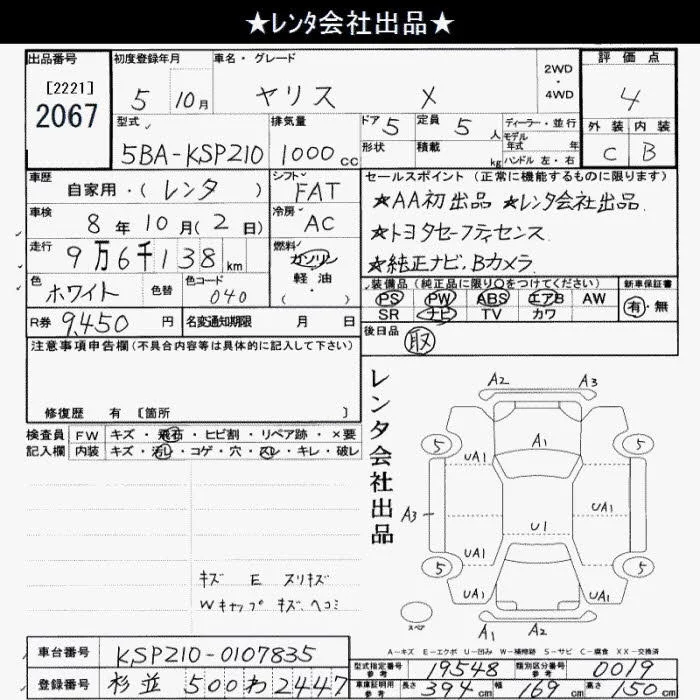 ★レンタ会社出品★
出品番号
[2221]
2067
初度登録年月
5 10月
車名・グレード
ヤリス X
2WD
・
4WD
評価点
4
外装 内装
C B
型式
5BA-KSP210
排気量
1000cc
ドア 5
形状
定員 5人
積載 kg
ディーラー・並行
モデル年式 年
ハンドル 左・右
車歴
自家用・(レンタ)
シフト
FAT
車検
8年10月(2日)
冷房
AC
走行
9万6千138km
燃料
ガソリン
軽油
・( )
色
ホワイト
色替
色コード
040
R券 9,450円
名変通知期限 月 日
セールスポイント (正常に機能するものに限ります)
★AA初出品 ★レンタ会社出品.
★トヨタセーフティセンス
★純正ナビ.Bカメラ
装備品(純正品に限り○をつけてください)
PS PW ABS エアB AW
SR ナビ TV カワ
新車保証書
有・無
後日品 取
注意事項申告欄(不具合内容等は具体的に記入して下さい)
修復歴 有 [箇所 ]
検査員
記入欄
FW キズ・飛石・ヒビ割・リペア跡・×要
内装 キズ・汚レ・コゲ・穴・スレ・キレ・破レ
キズ E スリキズ
Wキャップ キズ、ヘコミ
レンタ会社出品
A2 A3
5 A1 5
UA1
A3 UA1
U1
5 UA1 5
UA1 UA1
A1 A2
スペア
A-キズ E-エクボ U-凹み W-補修跡 S-サビ C-腐食 XX-交換済
車台番号 KSP210-0107835
登録番号 杉並 500 わ 2447
型式指定番号
参考
19548
類別区分番号
参考
0019
車庫証明用
参考
長さ 394cm 幅 169cm 高さ 150cm